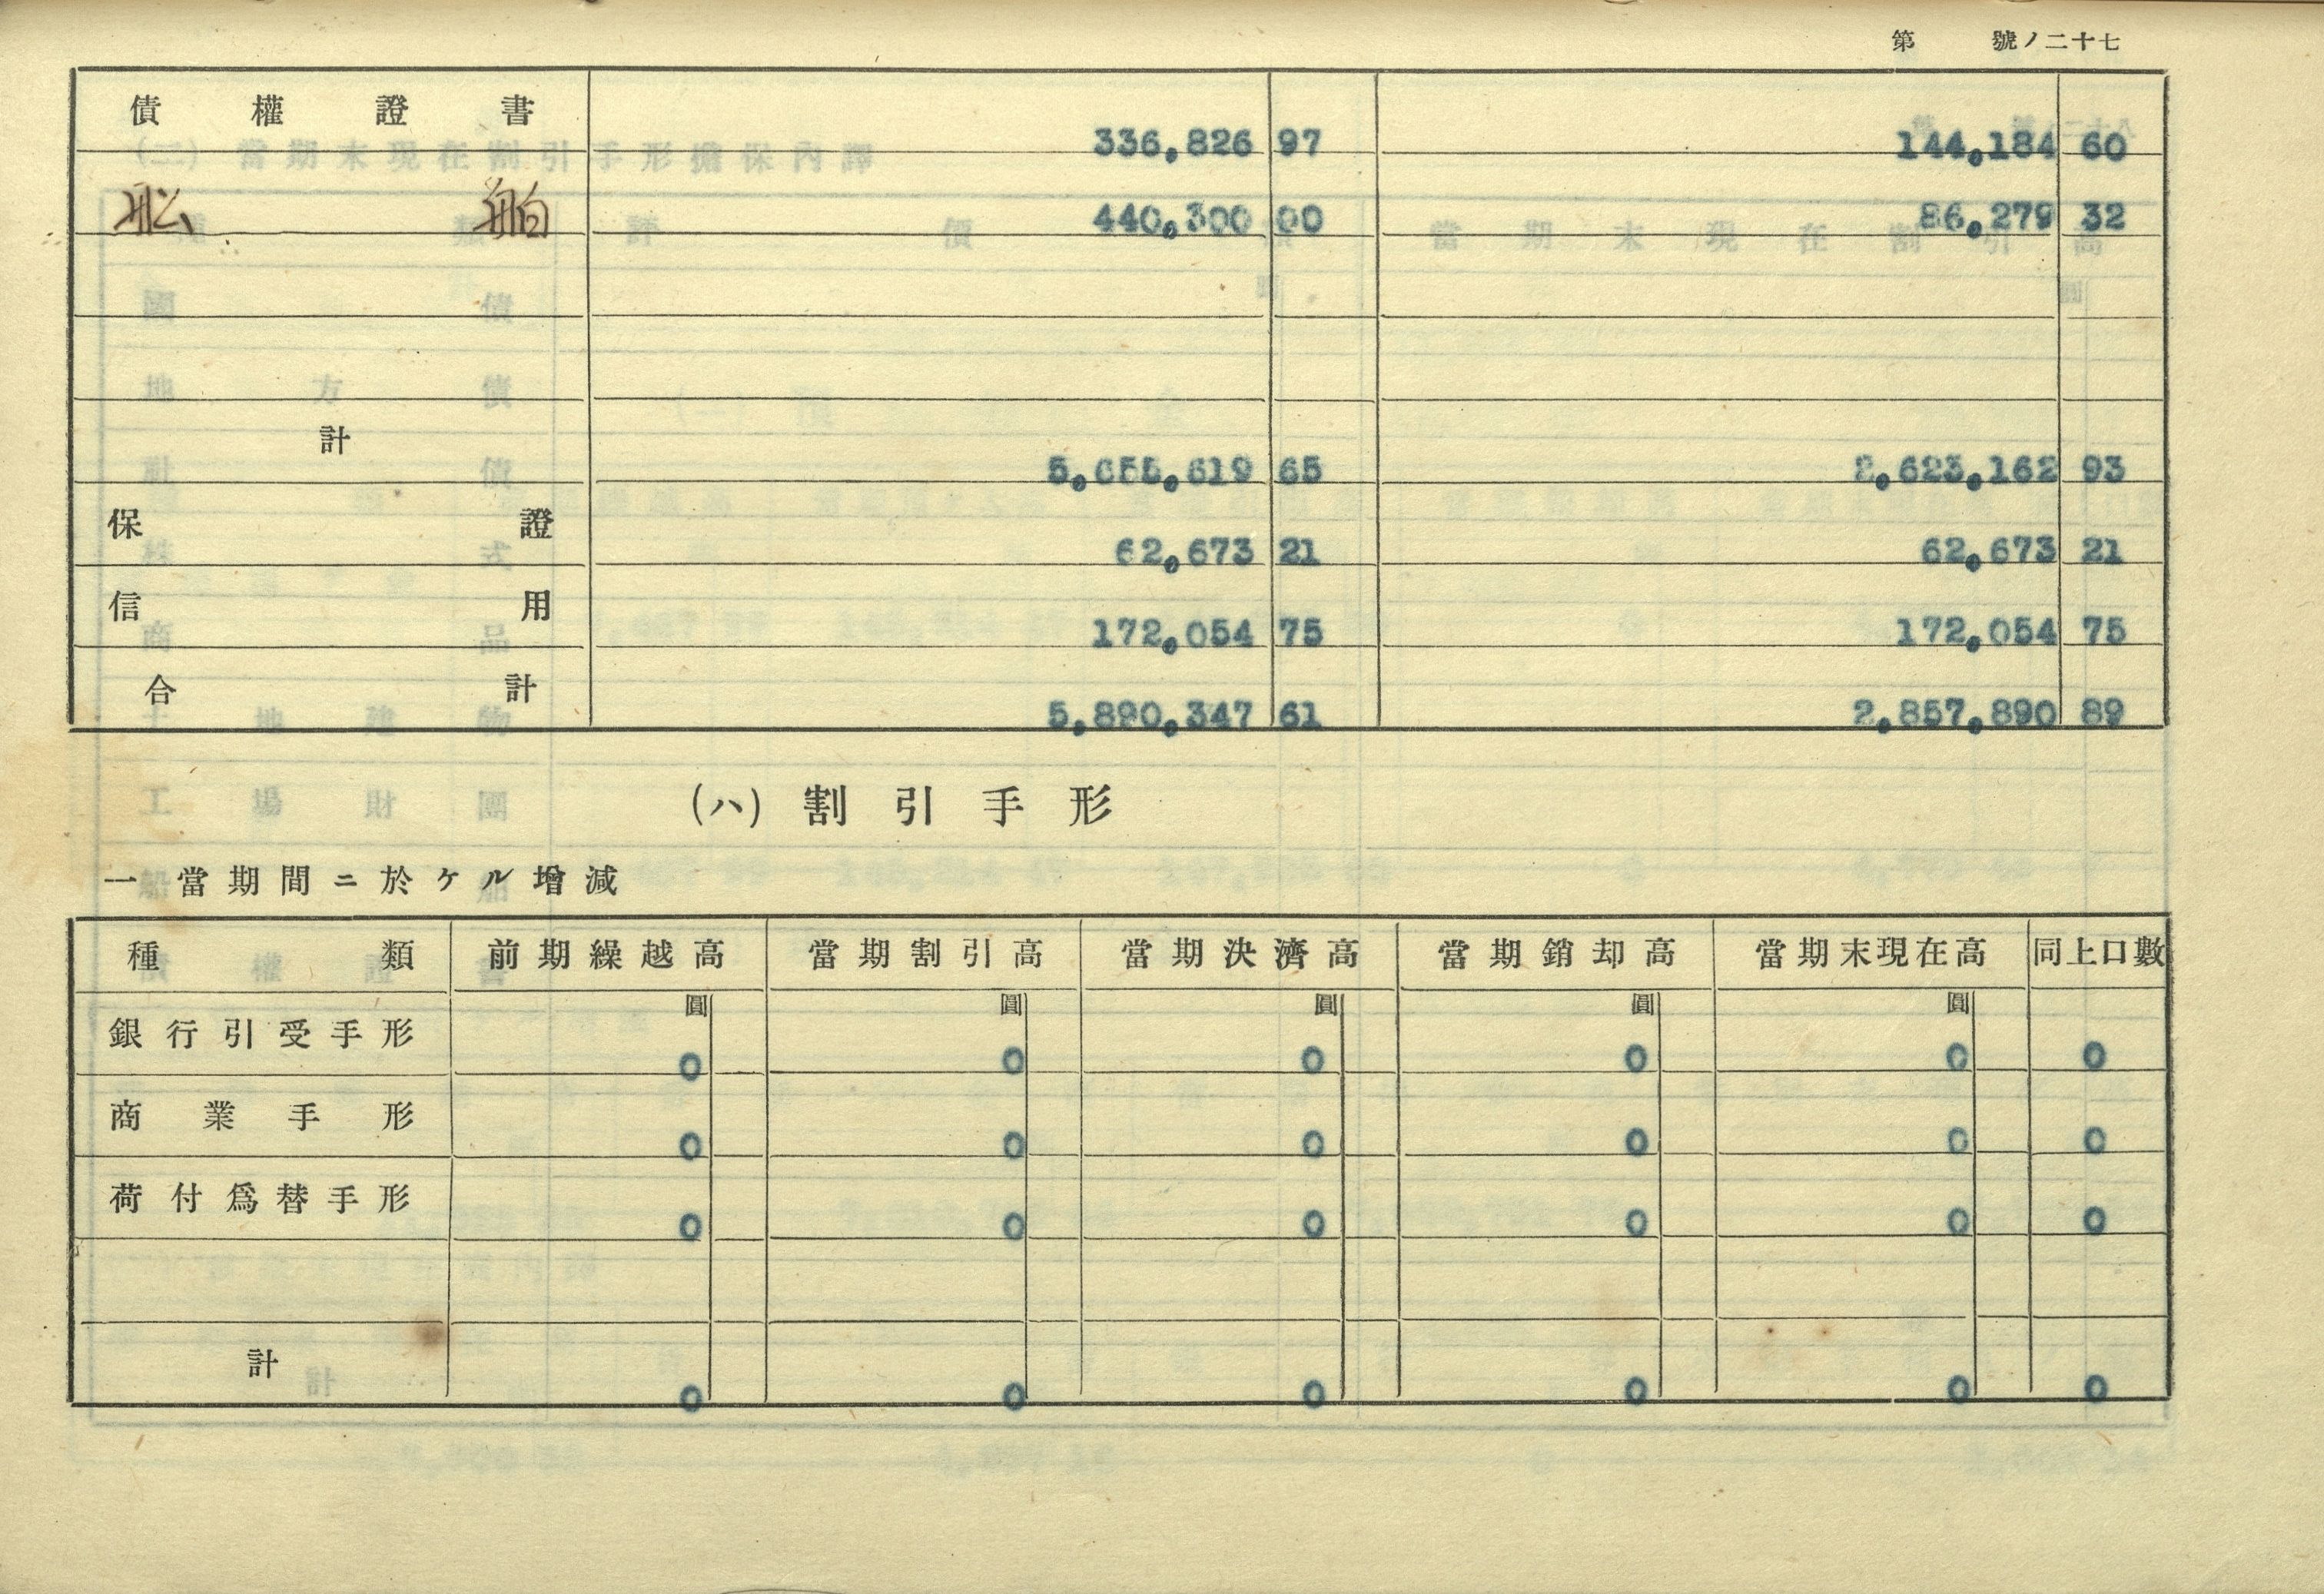 第 號ノ二十七
債權證書 336,826 97 144,184 60
舩舶 440,300 00 86,279 32
計 5,655,619 65 2,623,162 93
保證 62,673 21 62,673 21
信用 172,054 75 172,054 75
合計 5,890,347 61 2,857,890 89
(ハ) 割引手形
一 當期間ニ於ケル增減
種類 前期繰越高 當期割引高 當期決濟高 當期銷却高 當期末現在高 同上口數
圓 圓 圓 圓 圓
銀行引受手形 0 0 0 0 0 0
商業手形 0 0 0 0 0 0
荷付爲替手形 0 0 0 0 0 0
計 0 0 0 0 0 0